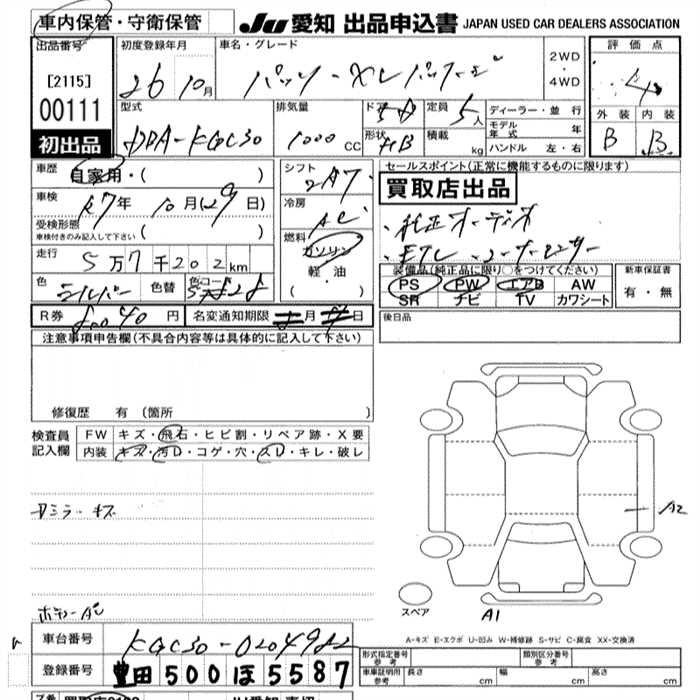 車内保管・守衛保管 JU 愛知 出品申込書 JAPAN USED CAR DEALERS ASSOCIATION
出品番号 初度登録年月 車名・グレード 2WD・4WD 評価点
[2115] 26 10月 パッソ XLパッケージ 4
00111 型式 排気量 ドア 5D 定員 5人 ディーラー・並行 外装 内装
初出品 DBA-KGC30 1000CC 形状 HB 積載 kg モデル年式 年 B B
ハンドル 左・右
車歴 自家用・( ) シフト 2AT セールスポイント(正常に機能するものに限ります)
車検 R7年 10月(29日) 冷房 AC 買取店出品
受検形態 車検付きのみ記入して下さい ・純正オーディオ
走行 5万7千202km 燃料 ガソリン 軽油 ( ) ・ETC ・コーナーセンサー
色 シルバー 色替 色コード 装備品(純正品に限り○をつけてください) 新車保証書
PS PW エアB AW 有・無
SR ナビ TV カワシート
R券 8040円 名変通知期限 月 日 後日品
注意事項申告欄(不具合内容等は具体的に記入して下さい)
修復歴 有 (箇所 )
検査員記入欄 FW キズ・飛石・ヒビ割・リペア跡・X要
内装 キズ・汚レ・コゲ・穴・スレ・キレ・破レ
ミラーキズ
A2
スペア
A1
A-キズ E-エクボ U-凹み W-補修跡 S-サビ C-腐食 XX-交換済
車台番号 KGC30-0204982 形式指定番号 参考 類別区分番号 参考
登録番号 豊田500ほ5587 車庫証明用 参考 長さ cm 幅 cm 高さ cm